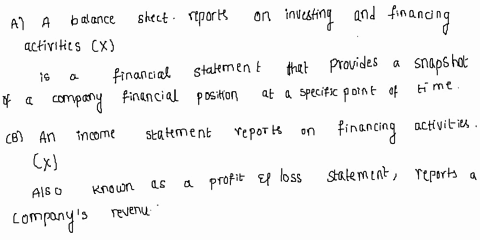 A) A balance sheet. reports on investing and financing
activities (X)
is a financial statement that provides a snapshot
of a company financial position at a specific point of time.
(B) An income statement reports on financing activities.
(X)
Also known as a profit & loss statement, reports a
company's revenu.